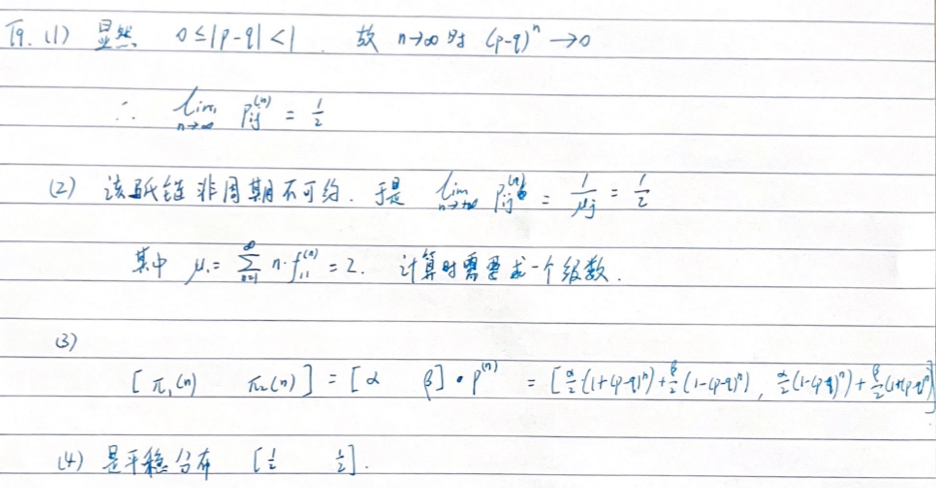 19. (1) 显然 0≤|p-q|<1. 故 n→∞时 (p-q)^n →0
∴ lim_{n→∞} P_{ij}^{(n)} = 1/2
(2) 该马氏链非周期不可约. 于是 lim_{n→∞} P_{ij}^{(n)} = 1/μj = 1/2
其中 μ₁= ∑_{n=1}^{∞} n·f_{11}^{(n)} = 2. 计算时需要求一个级数.
(3)
[π₁(n) π₂(n)] = [α β]·P^{(n)} = [α/2(1+(p-q)^n)+β/2(1-(p-q)^n), α/2(1-(p-q)^n)+β/2(1+(p-q)^n)]
(4) 是平稳分布 [1/2 1/2].